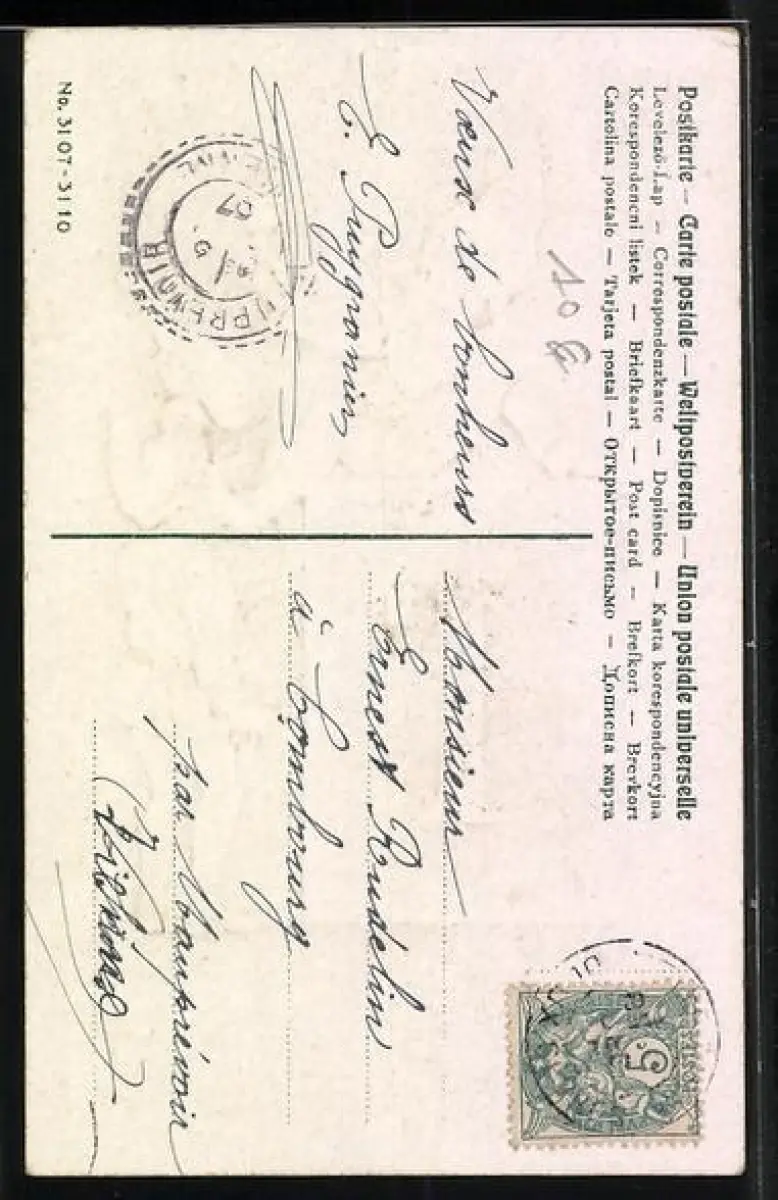 Postkarte – Carte postale – Weltpostverein – Union postale universelle
Levelező-Lap – Correspondenzkarte – Dopisnice – Karta korespondencyjna
Korespondencni listek – Briefkaart – Post card – Brefkort – Brevkort
Cartolina postale – Tarjeta postal – Открытое-письмо – Дописна карта
10 €
Vœux de bonheurs
E. Puygranier
No. 3107-3110
Monsieur
Ernest Rudelin
à Combourg
par Mauprévoir
(Vienne)
5
07